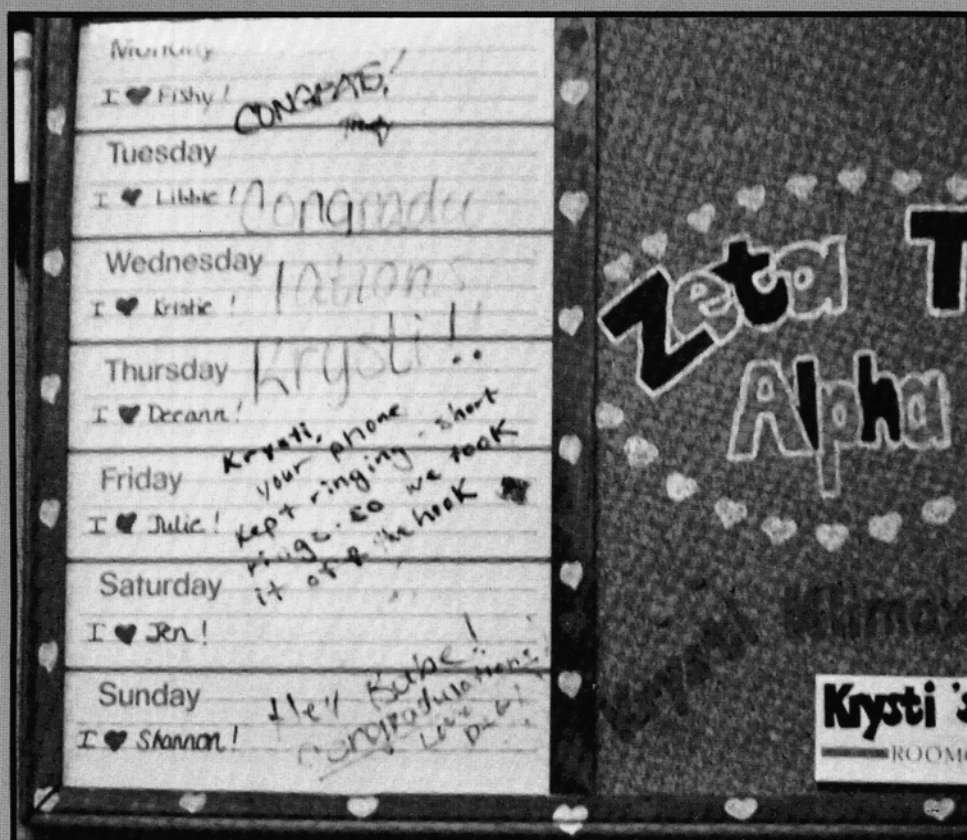 Monday
I ♥ Fishy!
CONGRATS!
Tuesday
I ♥ Libbie!
Congradu
Wednesday
lations
I ♥ Kristie!
Krysti!!
Thursday
I ♥ Deeann!
Krysti,
your phone
kept ringing - short
rings. so we took
it off the hook
Friday
I ♥ Julie!
Saturday
I ♥ Jen!
Sunday
I ♥ Shannon!
Hey Babe!
Congradulations!
Love
Zeta T
Alpha
Krysti's
ROOM